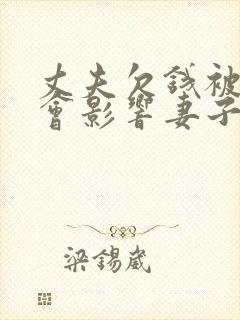 丈夫欠錢被
會影響妻子
梁錫崴